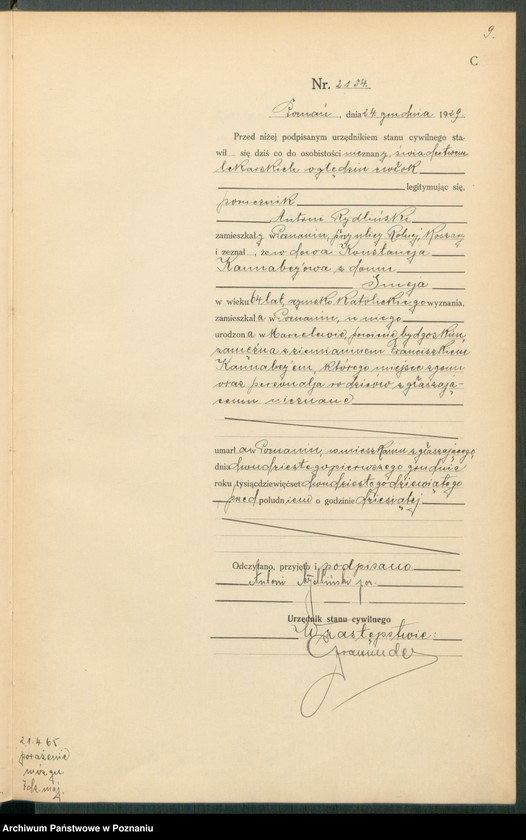 9.
C
Nr. 2134.
Poznań, dnia 24 grudnia 1929.
Przed niżej podpisanym urzędnikiem stanu cywilnego sta-
wił się dziś co do osobistości nieznany, świadectwem
lekarskich oględzin zwłok
legitymując się,
pomocnik
Antoni Rydliński
zamieszkały w Poznaniu, przy ulicy Rolnej
i zeznał, że wdowa Konstancja
Kannabey'owa z domu
Smeja
w wieku 64 lat, rzymsko katolickiego wyznania,
zamieszkała w Poznaniu, u niego
urodzona w Marcelewie, powiecie bydgoskim,
zamężna z ziemianinem Franciszkiem
Kannabey'em, którego miejsce zgonu
oraz personalja rodziców zgłaszają-
cemu nieznane
umarła w Poznaniu, w mieszkaniu zgłaszającego,
dnia dwudziestego pierwszego grudnia
roku tysiącdziewięćset dwudziestego dziewiątego
przed południem o godzinie dziesiątej
Odczytano, przyjęto i podpisano
Antoni Rydliński
Urzędnik stanu cywilnego
W zastępstwie:
21.4.65
porażenie
mózgu
Archiwum Państwowe w Poznaniu